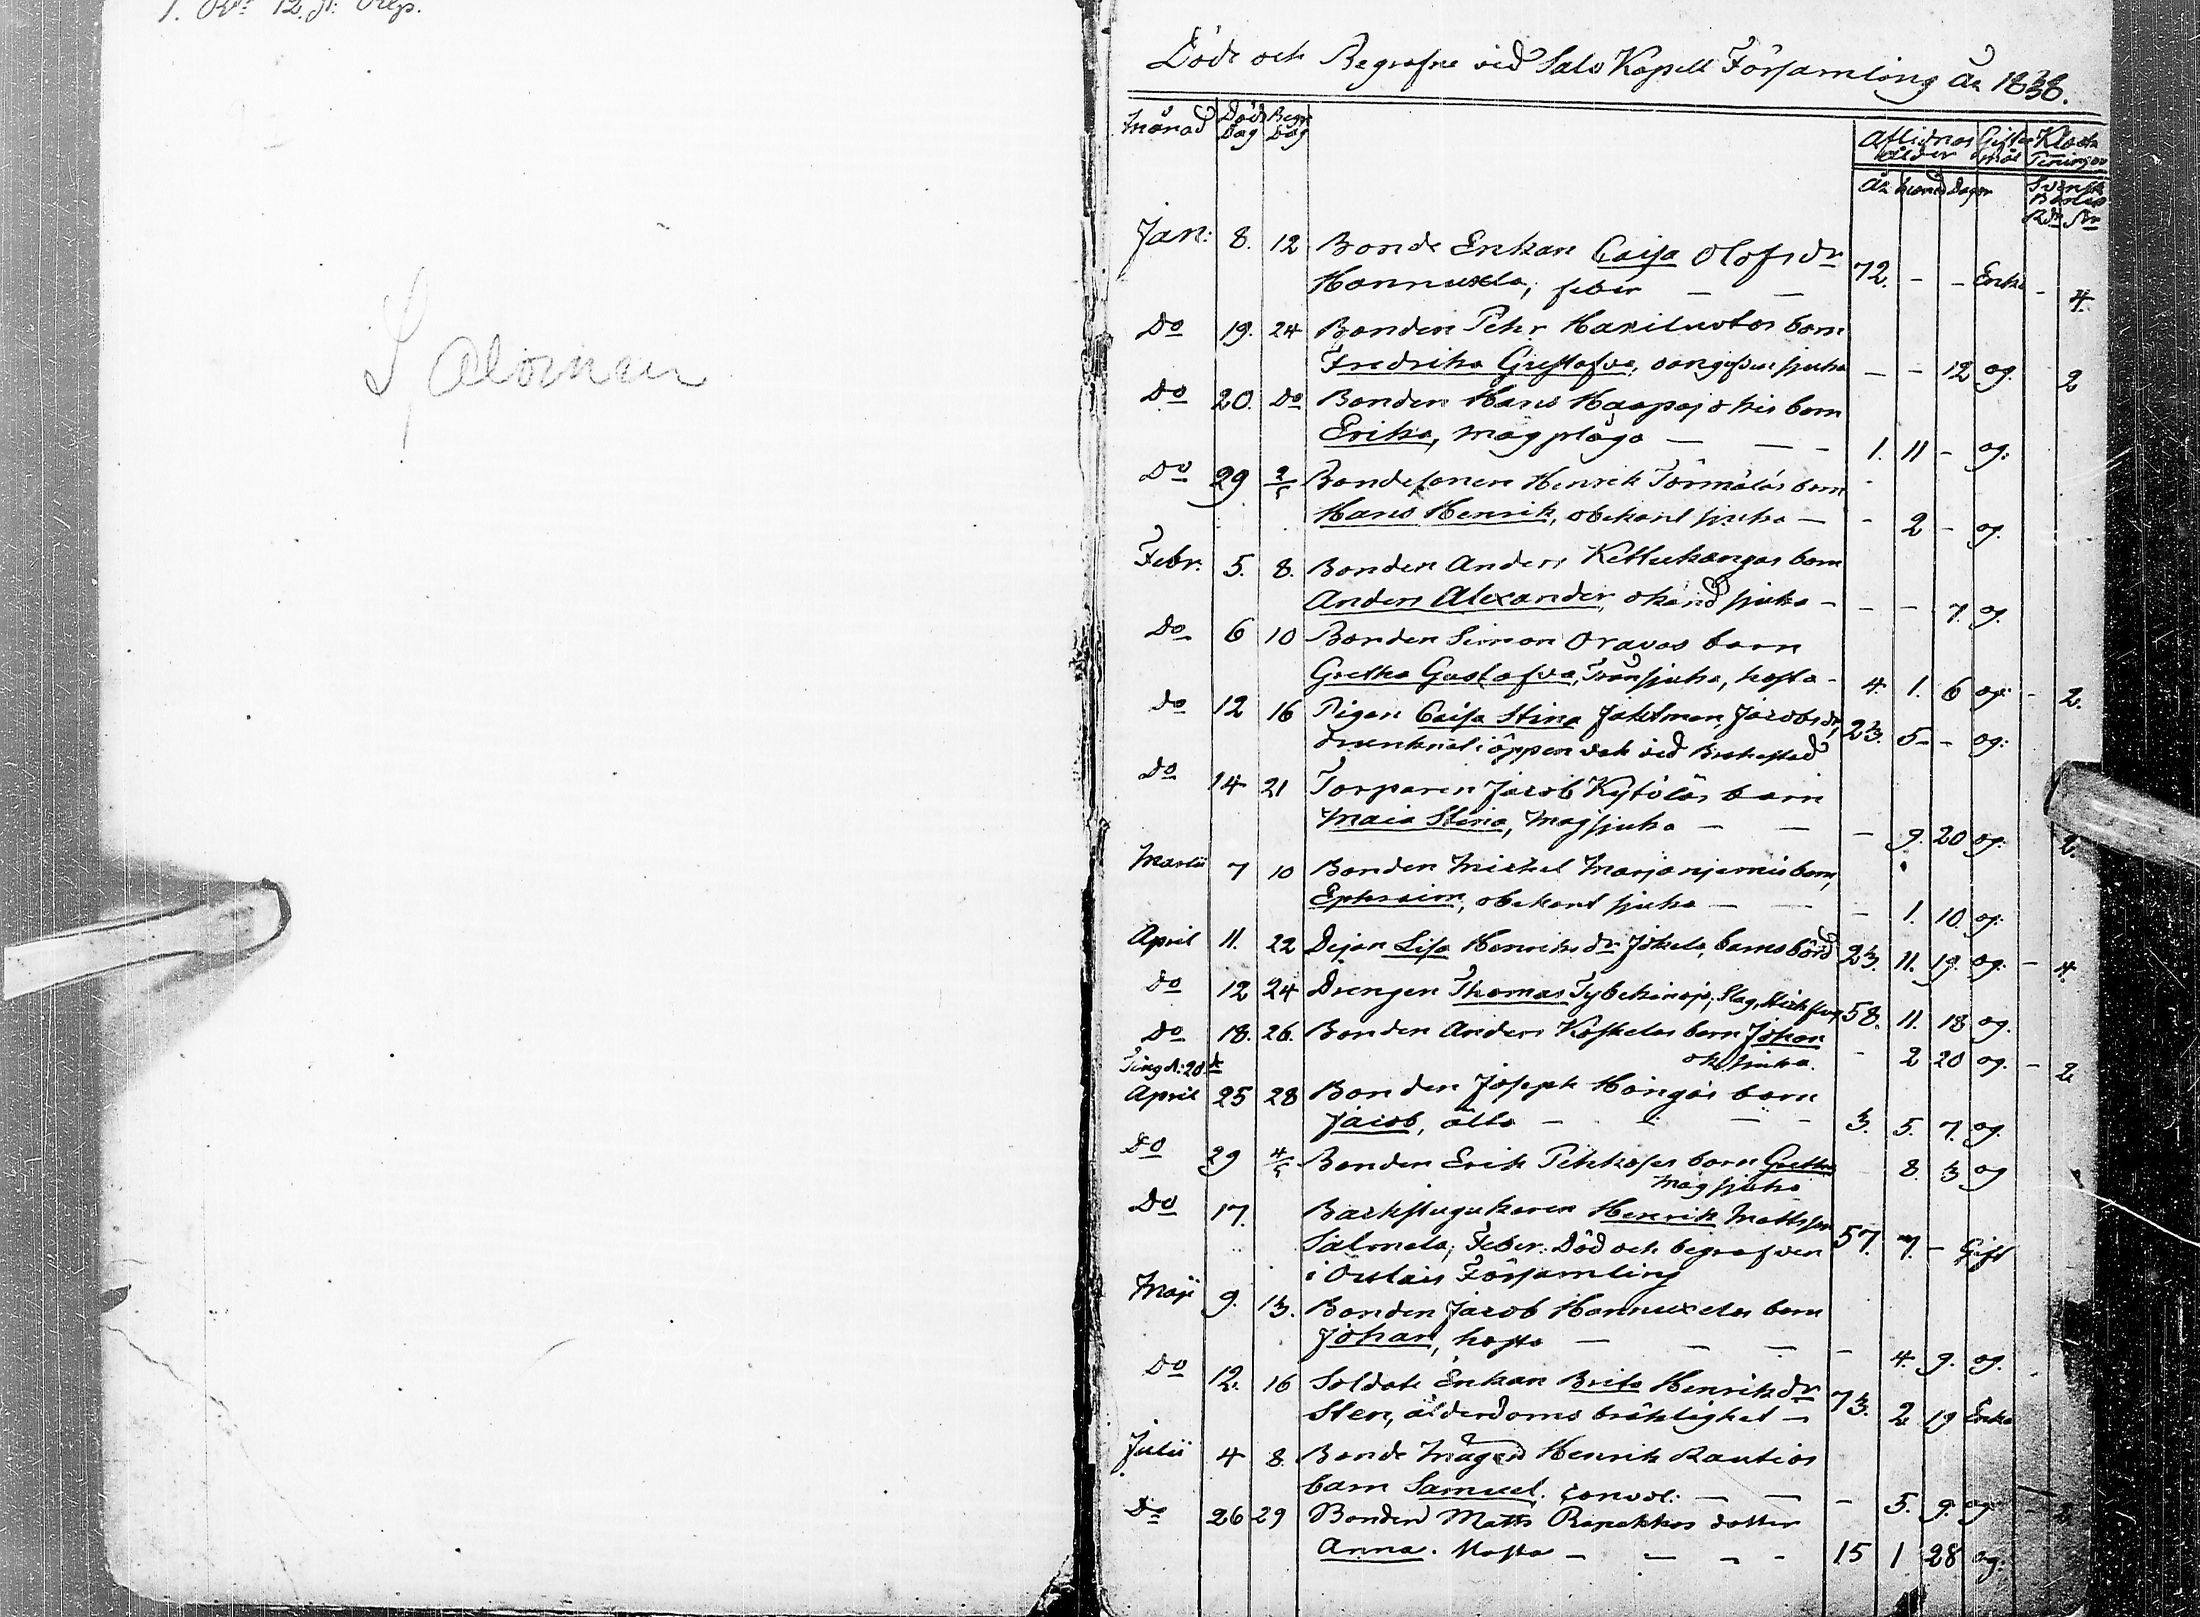 Saloinen
Döde och Begrafne vid Salo Kapell Församling År 1838.
Månad Döds Dag Begr Dag
Aflidnas ålder Gifter mål Klock Penningar
År Månad Dagar Svensk Banco Rdr Sk
Jan: 8. 12 Bonde Enkan Caisa Olofsdr
Hannuxela, feber — — 72. - - Enka - 4.
Do 19. 24 Bonden Pehr Harilustos barn
Fredrika Gustafva, sjuka — - 12 og. 2
Do 20. Do Bonden Hans Haapajokis barn
Erika, magplåga — — - 1. 11 - og:
Do 29 2/ Bondesonen Henrik Törmäläs barn
Hans Henrik, obekant sjuka — - 2 - og.
Febr. 5. 8. Bonden Anders Kettukangas barn
Anders Alexander, okänd sjuka - - - 7 og.
Do 6 10 Bonden Simon Oravas barn
Gretha Gustafva, sjuka, hosta - 4. 1. 6 og: - 2.
Do 12 16 Pigan Caisa Stina Jacobsdr, 23. 5 - - og:
drunknat i öppen vak vid Brahestad
Do 14 21 Torparen Jacob Kytöläs barn
Maia Stina, Magsjuka — — - 9. 20 og. 2.
Martii 7 10 Bonden Michel Marjaniemis barn,
Ephraim, obekant sjuka — — - 1. 10 og:
April 11. 22 Dejan Lisa Henriksdr Jokela, barnsbörd 23. 11. 19. og. - 4.
Do 12 24 Drengen Thomas 58. 11. 18 og.
Do 18. 26. Bonden Anders Koskelas barn Johan
ok. sjuka. - 2 20 og. - 2
Ting d: 20de
April 25 28 Bonden Joseph Hångas barn
Jacob, älta — — - 3. 5. 7. og.
Do 29 4/5 Bonden Erik Pehkoses barn Gretha 8. 3 og
magsjuka
Do 17. Backstugukaren Henrik Mattsson 57. 7. - Gift
Salmela, Feber. Död och begrafven
i Församling
Maji 9. 13. Bonden Jacob Hannuxelas barn
Johan, hosta — — — - 4. 9. og.
Do 12. 16 Soldats Enkan Brita Henriksdr
Sten, ålderdoms bräklighet — 73. 2 19 Enka
Julii 4 8. Bonde Mågen Henrik Rautios
barn Samuel. convol: — — - 5. 9. og: - 2
Do 26 29 Bonden Matts Repekkas dotter
Anna. Hosta — — - - 15 1 28 og: